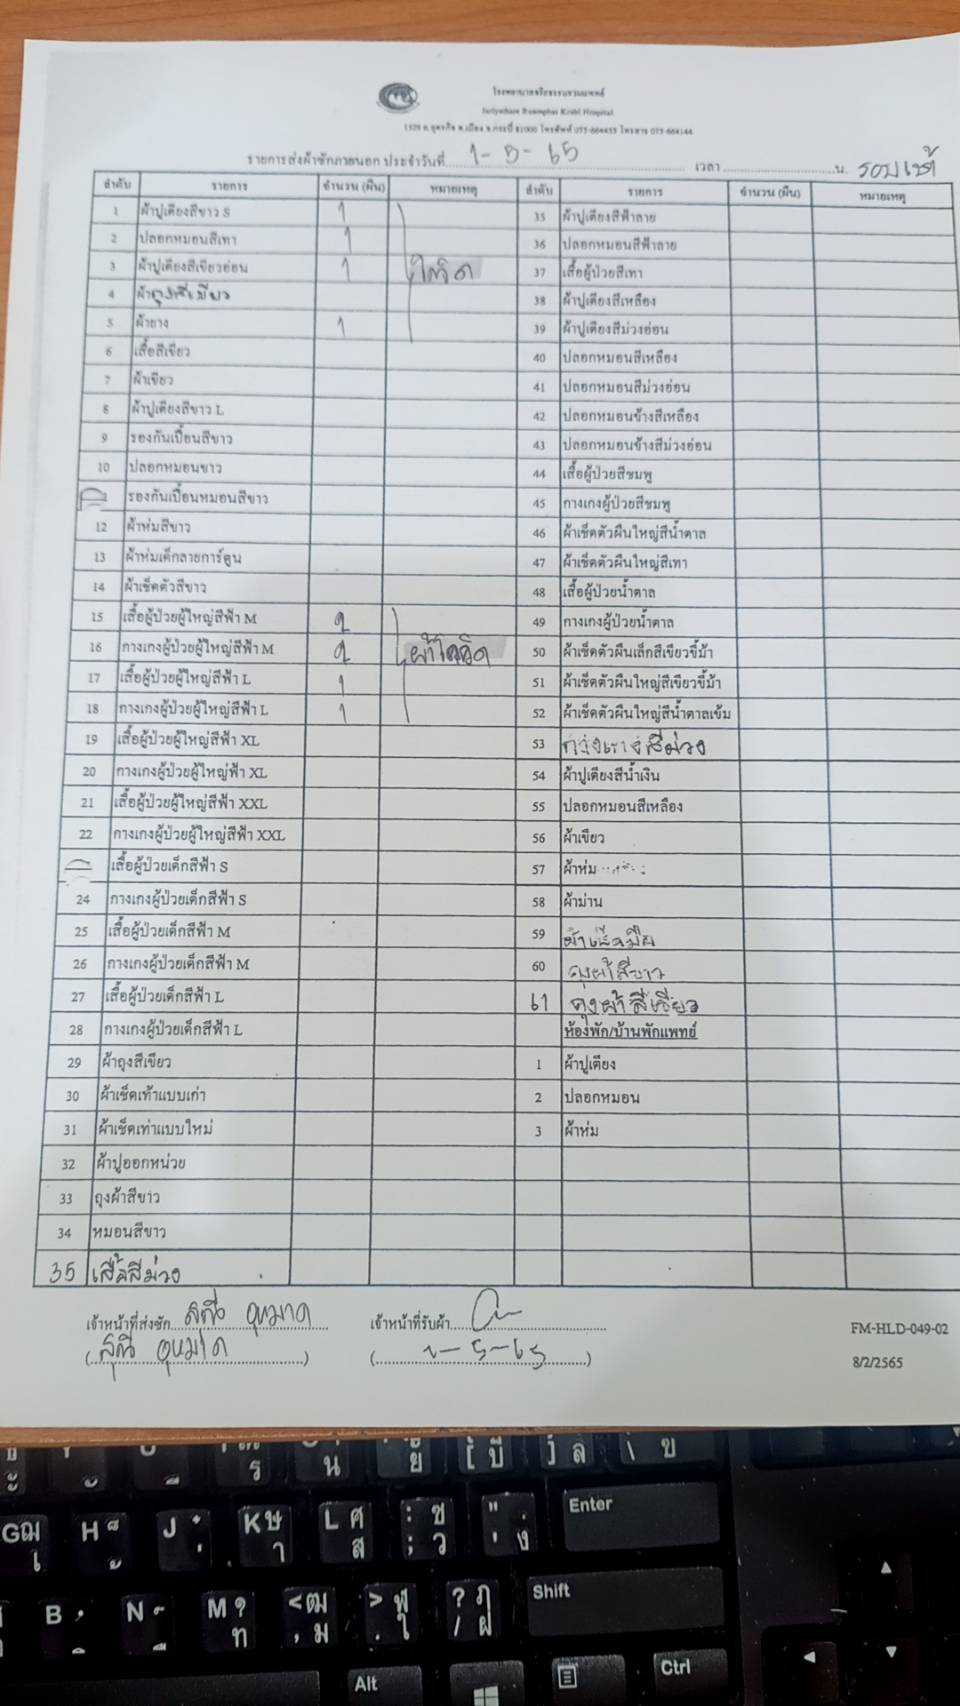 โรงพยาบาลจริยธรรมรวมแพทย์
Jariyatham Ruamphat Krabi Hospital
1329 ถ.อุตรกิจ อ.เมือง จ.กระบี่ 81000 โทรศัพท์ 075-664455 โทรสาร 075-664144
รายการส่งผ้าซักภายนอก ประจำวันที่ 1-5-65 เวลา น. รอบเช้า
ลำดับ รายการ จำนวน (ผืน) หมายเหตุ ลำดับ รายการ จำนวน (ผืน) หมายเหตุ
1 ผ้าปูเตียงสีขาว S 1 35 ผ้าปูเตียงสีฟ้าลาย
2 ปลอกหมอนสีเทา 1 36 ปลอกหมอนสีฟ้าลาย
3 ผ้าปูเตียงสีเขียวอ่อน 1 37 เสื้อผู้ป่วยสีเทา
4 38 ผ้าปูเตียงสีเหลือง
5 ผ้ายาง 1 39 ผ้าปูเตียงสีม่วงอ่อน
6 เสื้อสีเขียว 40 ปลอกหมอนสีเหลือง
7 ผ้าเขียว 41 ปลอกหมอนสีม่วงอ่อน
8 ผ้าปูเตียงสีขาว L 42 ปลอกหมอนข้างสีเหลือง
9 รองกันเปื้อนสีขาว 43 ปลอกหมอนข้างสีม่วงอ่อน
10 ปลอกหมอนขาว 44 เสื้อผู้ป่วยสีชมพู
รองกันเปื้อนหมอนสีขาว 45 กางเกงผู้ป่วยสีชมพู
12 ผ้าห่มสีขาว 46 ผ้าเช็ดตัวผืนใหญ่สีน้ำตาล
13 ผ้าห่มเด็กลายการ์ตูน 47 ผ้าเช็ดตัวผืนใหญ่สีเทา
14 ผ้าเช็ดตัวสีขาว 48 เสื้อผู้ป่วยน้ำตาล
15 เสื้อผู้ป่วยผู้ใหญ่สีฟ้า M 2 49 กางเกงผู้ป่วยน้ำตาล
16 กางเกงผู้ป่วยผู้ใหญ่สีฟ้า M 2 ผ้าโควิด 50 ผ้าเช็ดตัวผืนเล็กสีเขียวขี้ม้า
17 เสื้อผู้ป่วยผู้ใหญ่สีฟ้า L 1 51 ผ้าเช็ดตัวผืนใหญ่สีเขียวขี้ม้า
18 กางเกงผู้ป่วยผู้ใหญ่สีฟ้า L 1 52 ผ้าเช็ดตัวผืนใหญ่สีน้ำตาลเข้ม
19 เสื้อผู้ป่วยผู้ใหญ่สีฟ้า XL 53 กางเกงสีม่วง
20 กางเกงผู้ป่วยผู้ใหญ่ฟ้า XL 54 ผ้าปูเตียงสีน้ำเงิน
21 เสื้อผู้ป่วยผู้ใหญ่สีฟ้า XXL 55 ปลอกหมอนสีเหลือง
22 กางเกงผู้ป่วยผู้ใหญ่สีฟ้า XXL 56 ผ้าเขียว
เสื้อผู้ป่วยเด็กสีฟ้า S 57 ผ้าห่ม
24 กางเกงผู้ป่วยเด็กสีฟ้า S 58 ผ้าม่าน
25 เสื้อผู้ป่วยเด็กสีฟ้า M 59 ผ้าเช็ดมือ
26 กางเกงผู้ป่วยเด็กสีฟ้า M 60 ถุงผ้าสีขาว
27 เสื้อผู้ป่วยเด็กสีฟ้า L 61 ถุงผ้าสีเขียว
28 กางเกงผู้ป่วยเด็กสีฟ้า L ห้องพัก/บ้านพักแพทย์
29 ผ้าถุงสีเขียว 1 ผ้าปูเตียง
30 ผ้าเช็ดเท้าแบบเก่า 2 ปลอกหมอน
31 ผ้าเช็ดเท่าแบบใหม่ 3 ผ้าห่ม
32 ผ้าปูออกหน่วย
33 ถุงผ้าสีขาว
34 หมอนสีขาว
35 เสื้อสีม่วง
เจ้าหน้าที่ส่งซัก เจ้าหน้าที่รับผ้า FM-HLD-049-02
1-5-65 8/2/2565
ร น ย [ บี ] ล ข
G ฌ เ H J K ษ า L ศ ส : ซ ; ว " ' ง Enter
B N M ? ท < ฒ , ม > ฬ . ใ ? ฦ / ฝ Shift
Alt Ctrl